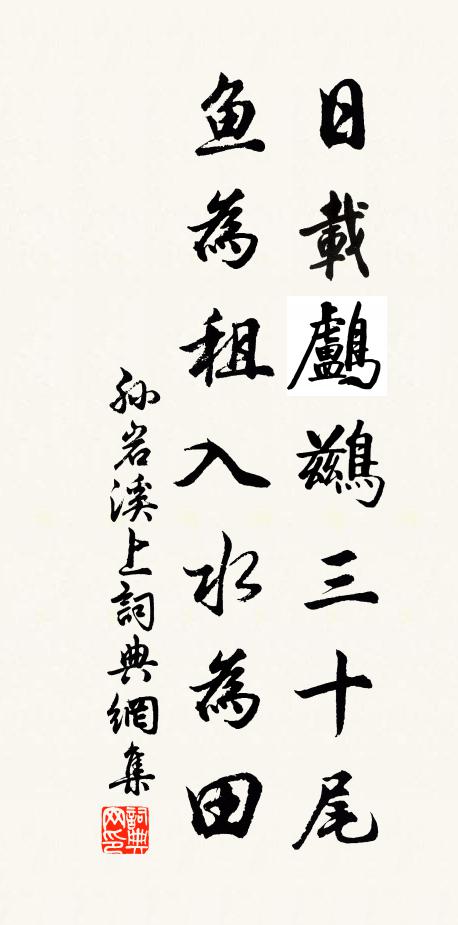 日載鸕鷀三十尾
魚為租入水為田
孫岩溪上詞典網集
詞典网印